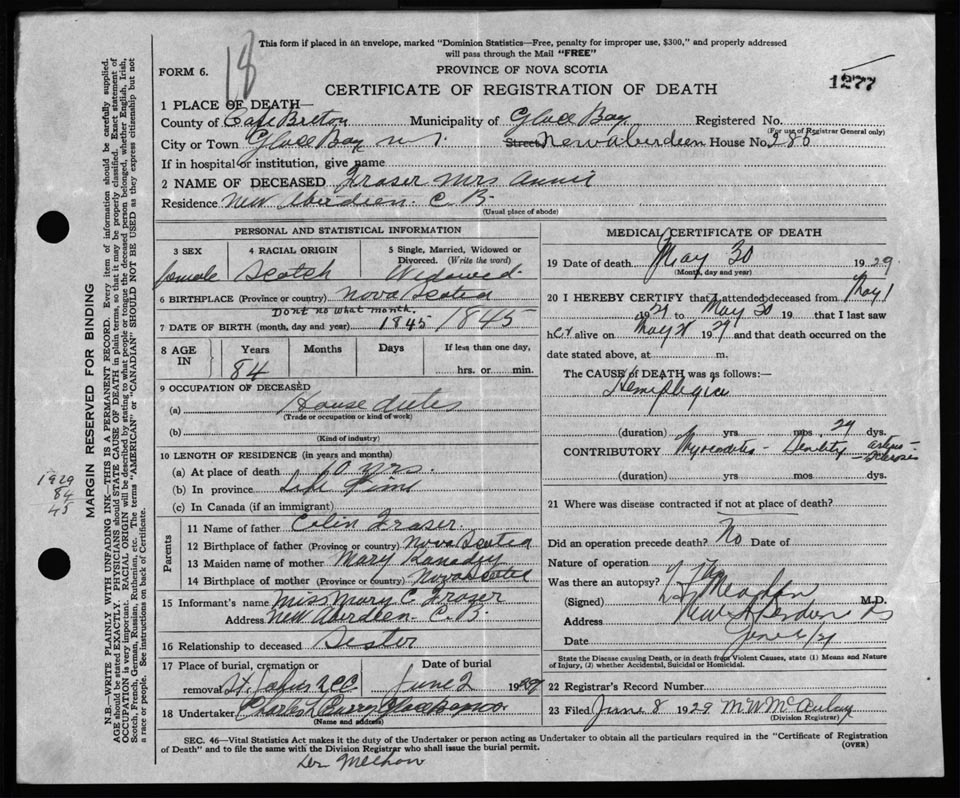 18
This form if placed in an envelope, marked "Dominion Statistics—Free, penalty for improper use, $300," and properly addressed
will pass through the Mail "FREE"
FORM 6.
PROVINCE OF NOVA SCOTIA
CERTIFICATE OF REGISTRATION OF DEATH
1277
1 PLACE OF DEATH—
County of Cape Breton Municipality of Glace Bay Registered No.
(For use of Registrar General only)
City or Town Glace Bay Street New Aberdeen House No. 280
If in hospital or institution, give name
2 NAME OF DECEASED Fraser Mrs Annie
Residence New Aberdeen C. B.
(Usual place of abode)
PERSONAL AND STATISTICAL INFORMATION
3 SEX
female
4 RACIAL ORIGIN
Scotch
5 Single, Married, Widowed or
Divorced. (Write the word)
Widowed
6 BIRTHPLACE (Province or country) Nova Scotia
Dont no what month.
7 DATE OF BIRTH (month, day and year) 1845 1845
8 AGE
IN
Years
84
Months
Days
If less than one day,
hrs. or min.
9 OCCUPATION OF DECEASED
(a) House duties
(Trade or occupation or kind of work)
(b)
(Kind of industry)
10 LENGTH OF RESIDENCE (in years and months)
(a) At place of death yrs.
(b) In province Life Time
(c) In Canada (if an immigrant)
Parents
11 Name of father Colin Fraser
12 Birthplace of father (Province or country) Nova Scotia
13 Maiden name of mother Mary
14 Birthplace of mother (Province or country) Nova Scotia
15 Informant's name Miss Mary C Fraser
Address New Aberdeen C. B.
16 Relationship to deceased Sister
17 Place of burial, cremation or
removal
Date of burial
June 2 1929
18 Undertaker Charles Curry
(Name and address)
MEDICAL CERTIFICATE OF DEATH
19 Date of death May 30 1929
(Month, day and year)
20 I HEREBY CERTIFY that I attended deceased from May 1
1929 to May 30 19 that I last saw
her alive on May 1929 and that death occurred on the
date stated above, at m.
The CAUSE of DEATH was as follows:
Hemiplegia
(duration) yrs mos 29 dys.
CONTRIBUTORY Myocarditis — arterio-
sclerosis
(duration) yrs mos dys.
21 Where was disease contracted if not at place of death?
Did an operation precede death? No Date of
Nature of operation
Was there an autopsy?
(Signed) M.D.
Address New Aberdeen
Date June
State the Disease causing Death, or in death from Violent Causes, state (1) Means and Nature
of Injury, (2) whether Accidental, Suicidal or Homicidal.
22 Registrar's Record Number
23 Filed June 8 1929 M W McAulay
(Division Registrar)
SEC. 46—Vital Statistics Act makes it the duty of the Undertaker or person acting as Undertaker to obtain all the particulars required in the "Certificate of Registration
of Death" and to file the same with the Division Registrar who shall issue the burial permit.
(OVER)
1929
84
45
MARGIN RESERVED FOR BINDING
N.B.—WRITE PLAINLY WITH UNFADING INK—THIS IS A PERMANENT RECORD. Every item of information should be carefully supplied.
AGE should be stated EXACTLY. PHYSICIANS should STATE CAUSE OF DEATH in plain terms, so that it may be properly classified. Exact statement of
OCCUPATION is very important. RACIAL ORIGIN will be described by stating to what people or tongue the deceased person belonged, whether English, Irish,
Scotch, French, German, Russian, Ruthenian, etc. The terms "AMERICAN" or "CANADIAN" SHOULD NOT BE USED as they express citizenship but not
a race or people. See instructions on back of Certificate.